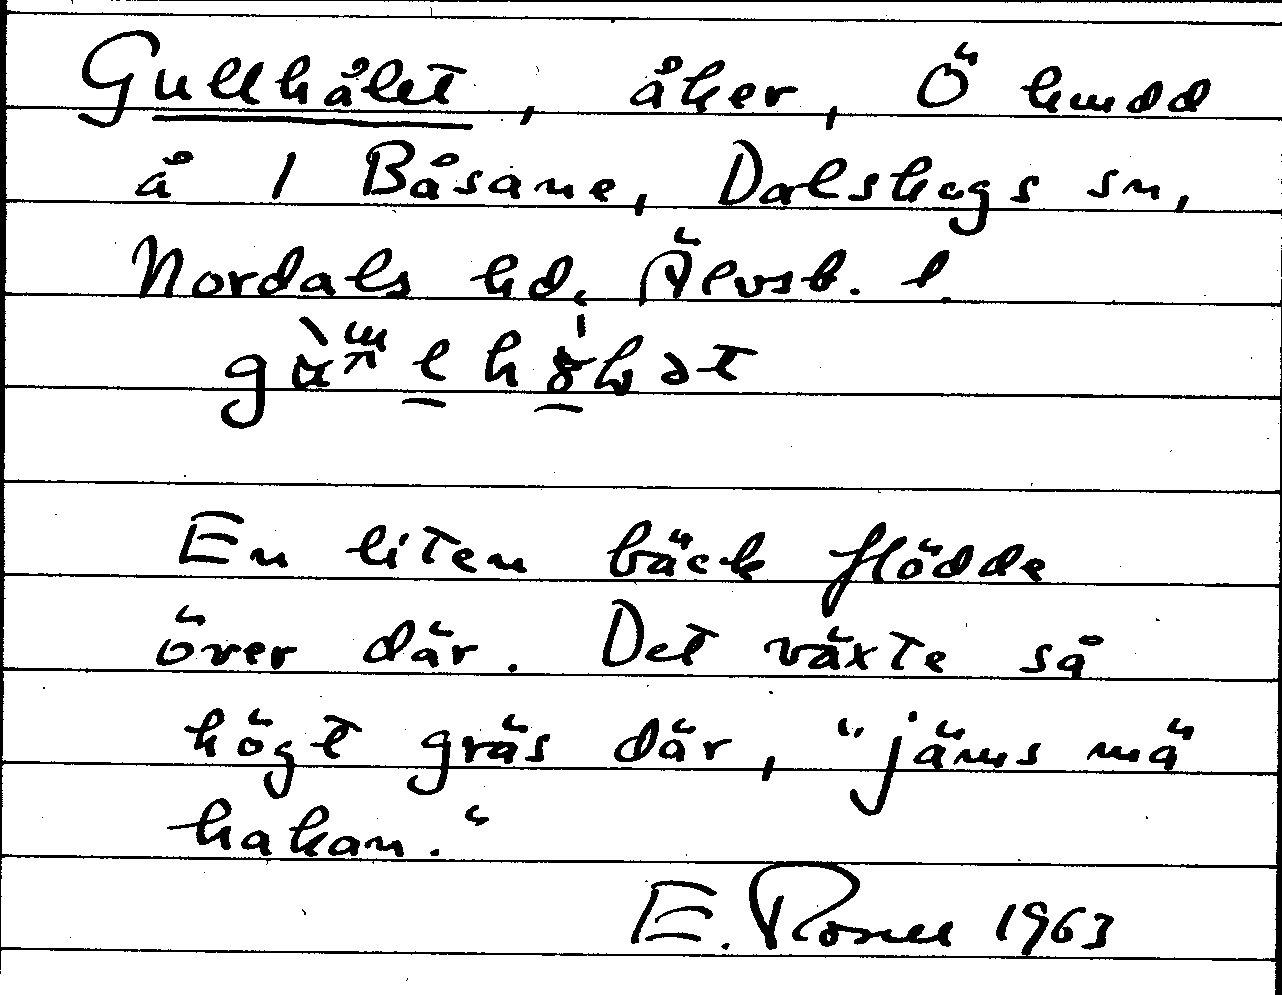 Gullhålet, åker, Ö hmdd
å 1 Båsane, Dalskogs sn,
Nordals hd, Älvsb. l.
En liten bäck flödde
över där. Det växte så
högt gräs där, "jäms mä
hakan."
E. 1963